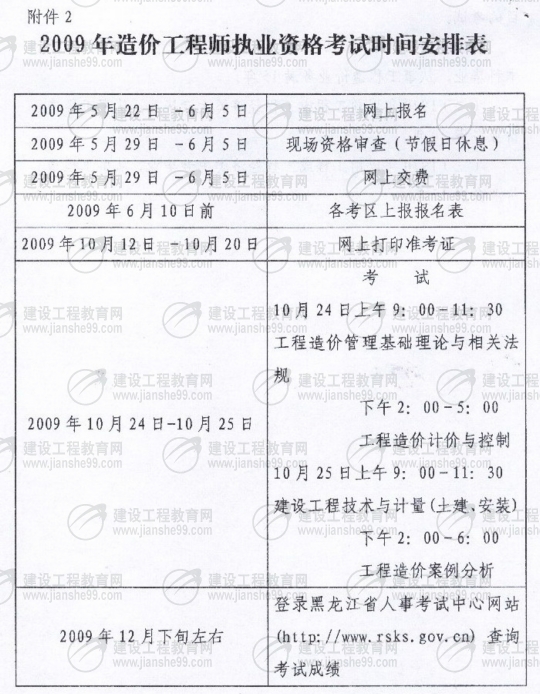 附件 2
2009 年造价工程师执业资格考试时间安排表
2009 年 5 月 22 日 -6 月 5 日 网上报名
2009 年 5 月 29 日 -6 月 5 日 现场资格审查（节假日休息）
2009 年 5 月 29 日 -6 月 5 日 网上交费
2009 年 6 月 10 日前 各考区上报报名表
2009 年 10 月 12 日 -10 月 20 日 网上打印准考证
2009 年 10 月 24 日-10 月 25 日
考 试
10 月 24 日上午 9：00-11：30
工程造价管理基础理论与相关法
规
下午 2：00-5：00
工程造价计价与控制
10 月 25 日上午 9：00-11：30
建设工程技术与计量(土建、安装)
下午 2：00-6：00
工程造价案例分析
2009 年 12 月下旬左右
登录黑龙江省人事考试中心网站
(http://www.rsks.gov.cn) 查询
考试成绩
建设工程教育网
www.jianshe99.com